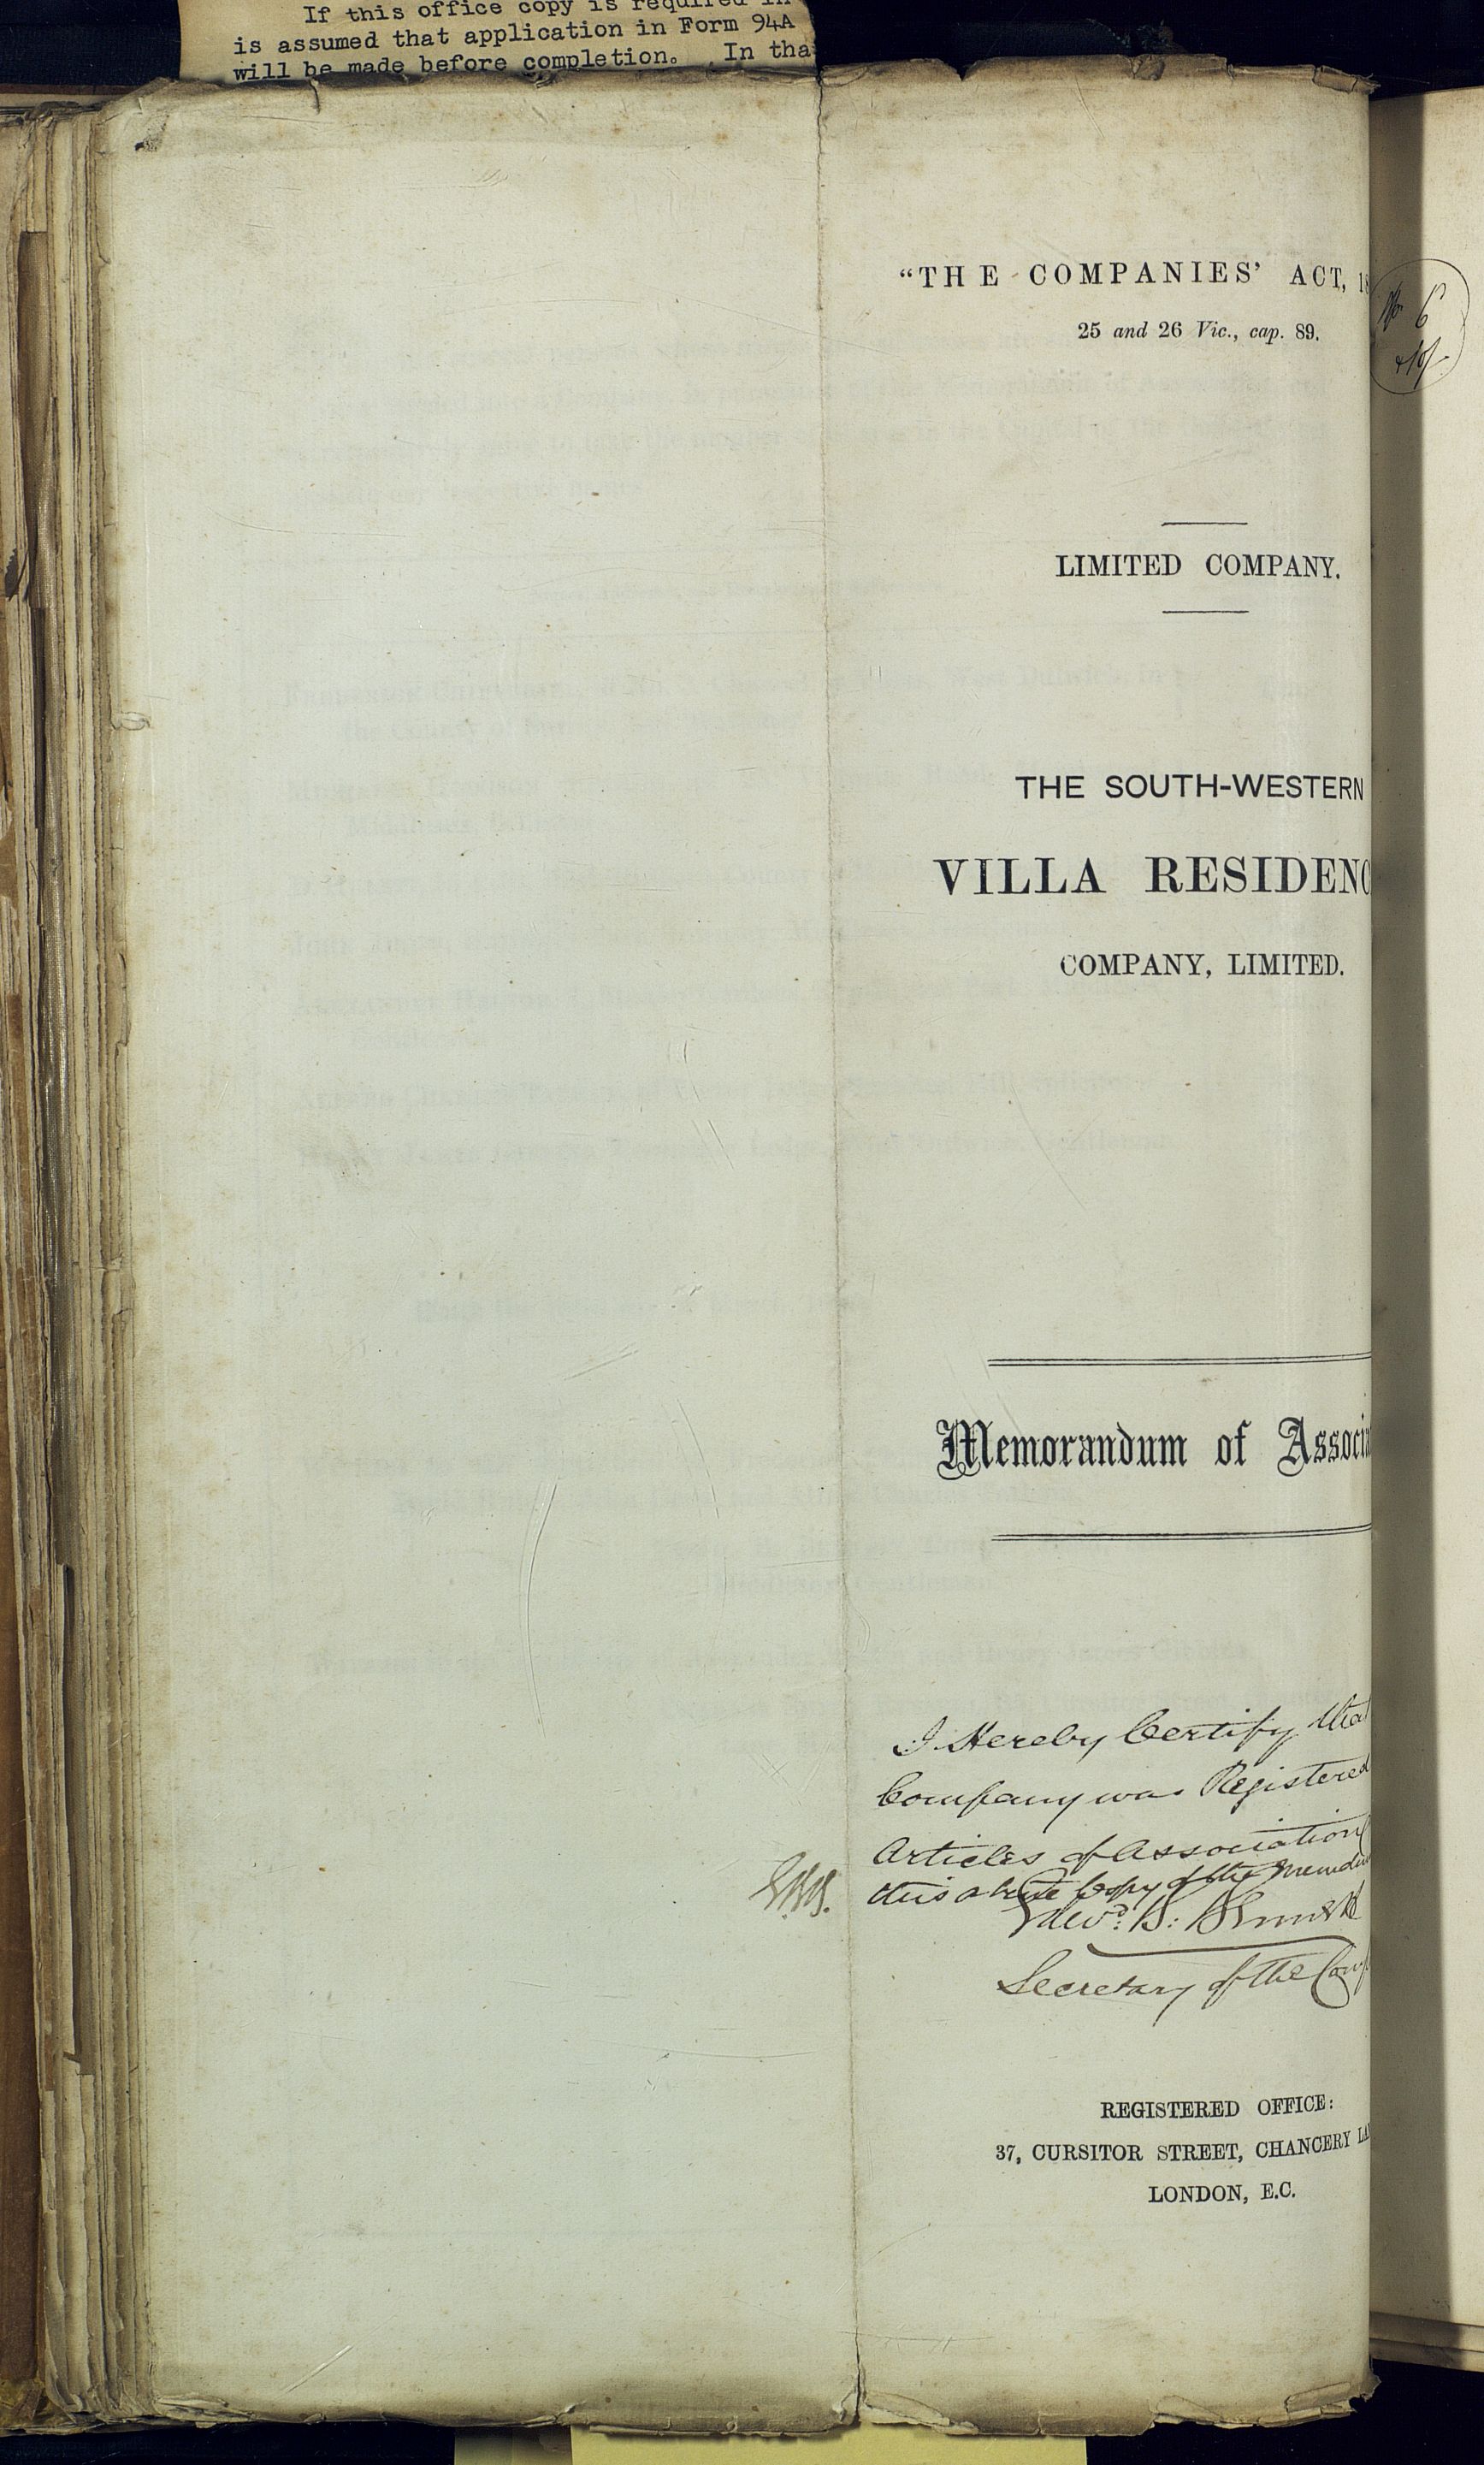 If this office copy is required in
is assumed that application in Form 94A
will be made before completion. In tha
"THE COMPANIES' ACT, 18
25 and 26 Vic., cap. 89.
No 6
LIMITED COMPANY.
THE SOUTH-WESTERN
VILLA RESIDENC
COMPANY, LIMITED.
Memorandum of Associa
I Hereby Certify that
Company was Registered
Articles of Association
this a true Copy of the Memdu
Edwd. B.
Secretary of the Comp
REGISTERED OFFICE:
37, CURSITOR STREET, CHANCERY LA
LONDON, E.C.